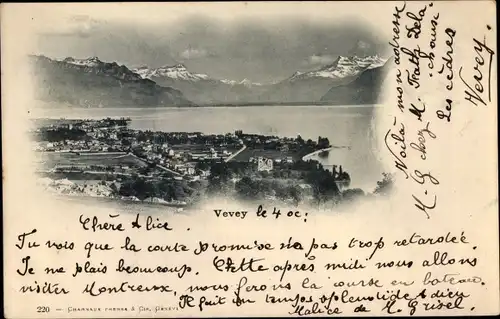 Vevey le 4 oc:
Chère Alice.
Tu vois que la carte promise n'a pas trop retardée.
Je me plais beaucoup. Cette après midi nous allons
visiter Montreux, nous ferons la course en bateau.
Il fait un temps splendide Adieu
Alice de M. Grisel.
220 - CHARNAUX FRÈRES & CIE, GENÈVE
Voilà mon adresse
M. G chez M. Delachaus
Les cèdres
Vevey